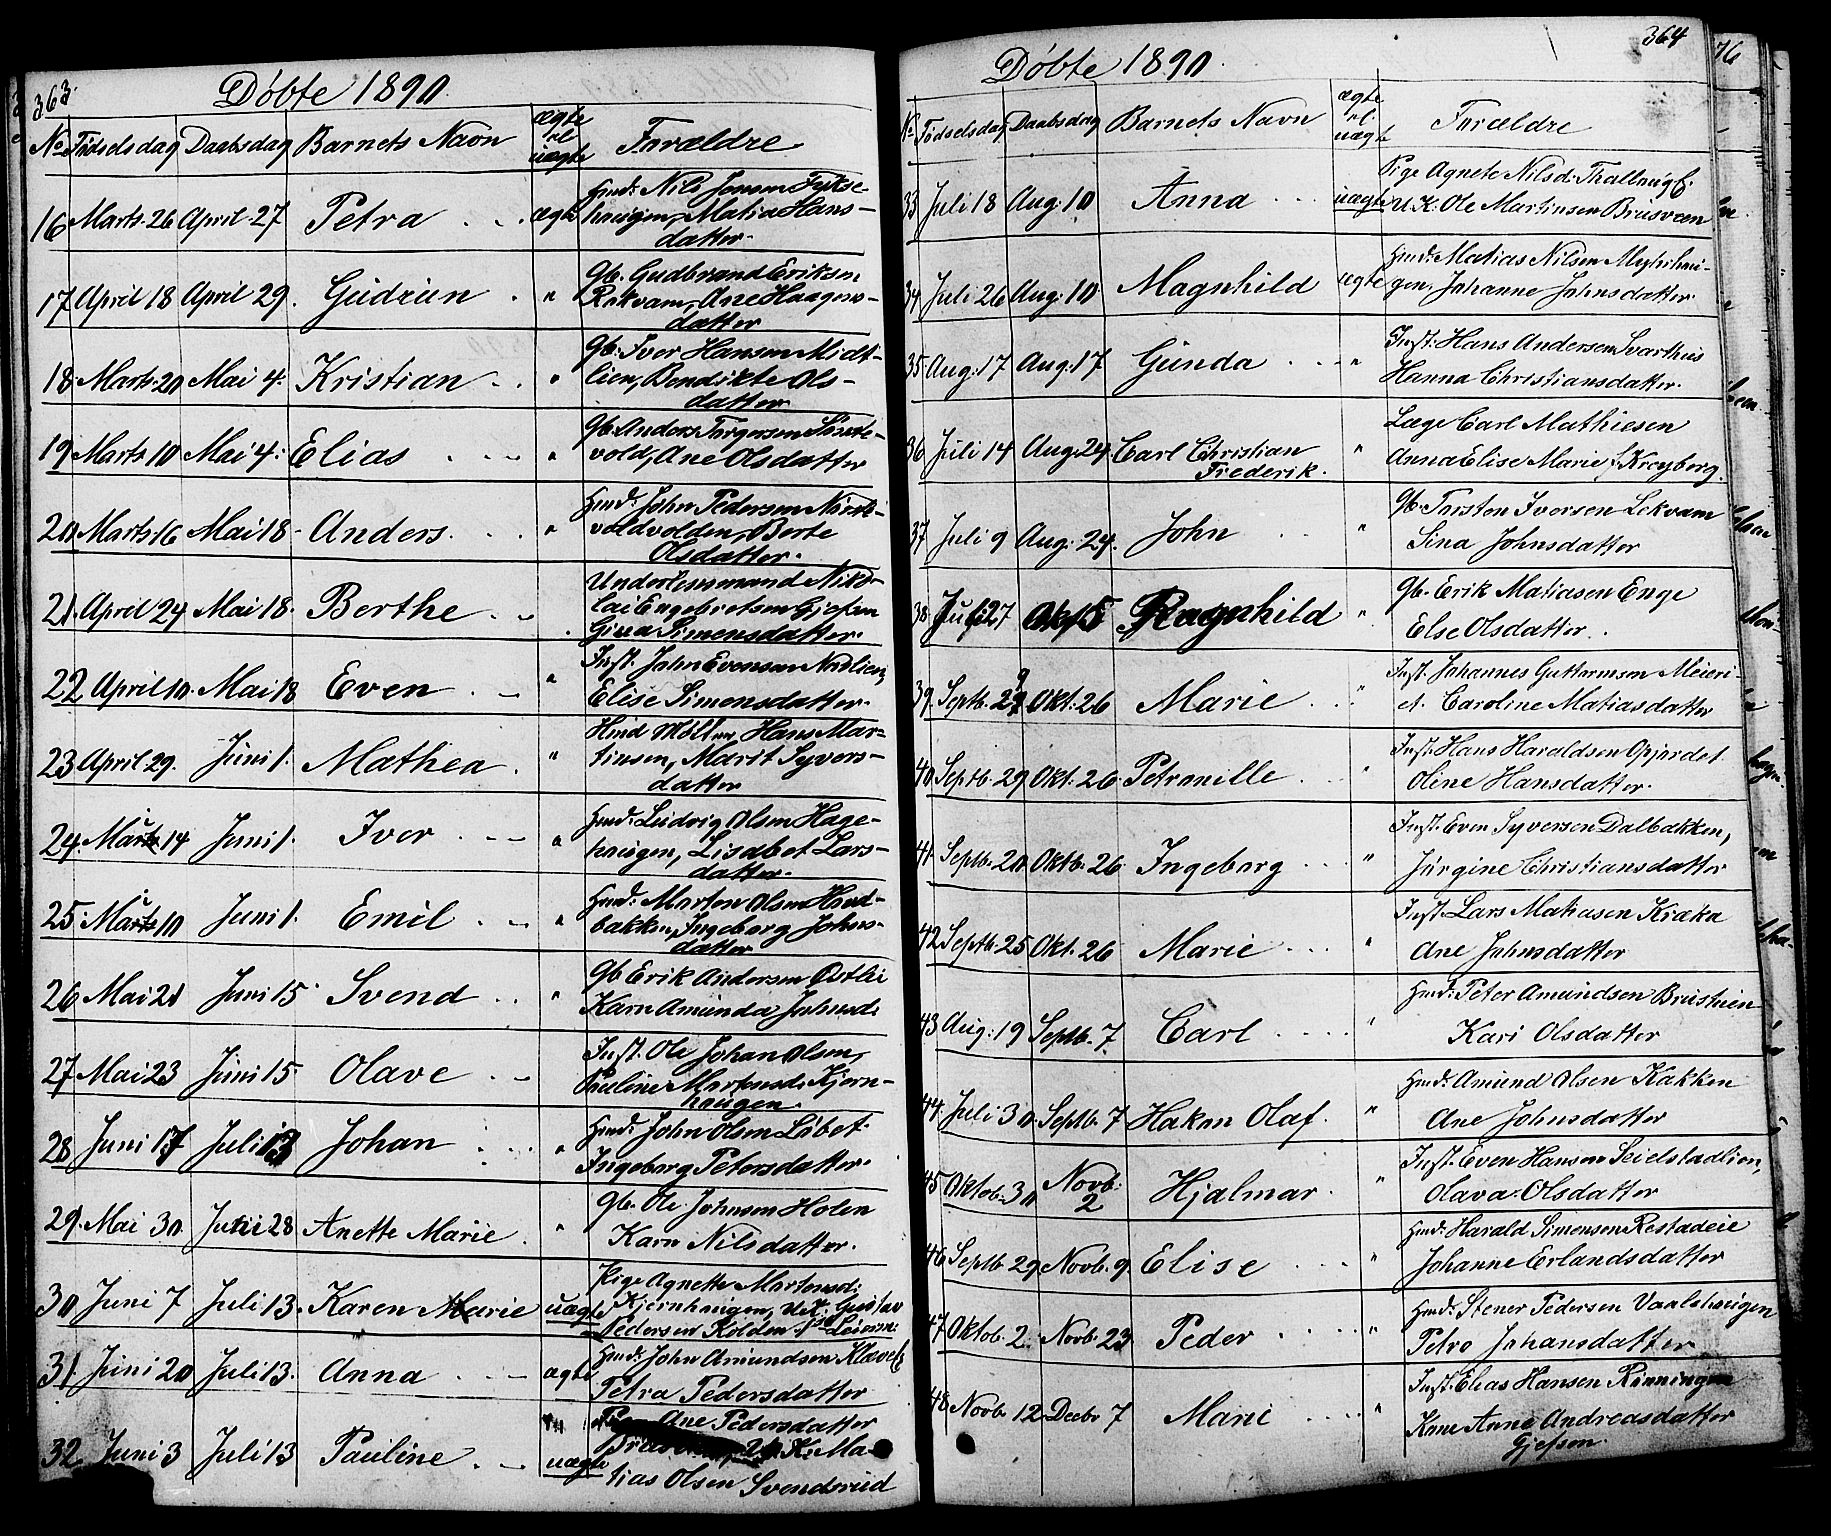 363.
Döbte 1890.
No Födselsdag Daabsdag Barnets Navn ægte el. uægte Forældre
16 Marts 26 April 27 Petra ægte Hmd: Nils Jensen Fykse-
haugen, Matia Hans-
datter.
17 April 18 April 29. Gudrun " Gb. Gudbrand Eriksen
Rekvam, Ane Haagens-
datter
18. Marts 20 Mai 4. Kristian " Gb: Iver Hansen Midt-
lien, Bendikte Ols-
datter.
19. Marts 10 Mai 4: Elias " Gb. Anders Torgersen
vold, Ane Olsdatter
20 Marts 16 Mai 18. Anders " Hmd: John Pedersen
voldvolden, Berte
Olsdatter.
21. April 24 Mai 18. Berthe Underlensmand Niko-
lai Engebretsen Gjefsen
Gina Simensdatter.
22 April 10. Mai 18 Even " Inst. John Evensen Nordlien,
Elise Simensdatter.
23 April 29. Juni 1. Mathea " Hmd Möllen, Hans Mar-
tinsen, Marit Syvers-
datter
24. Marts 14 Juni 1. Iver " Hmd: Ludvig Olsen Hage-
haugen, Lisabet Lars-
datter.
25. Marts 10 Juni 1. Emil " Hmd: Morten Olsen
bakken, Ingeborg Johns-
datter
26 Mai 21 Juni 15. Svend " Gb Erik Andersen Östlie
Karn Amunda Johnsd:
27 Mai 23 Juni 15 Olave Inst. Ole Johan Olsen,
Pauline Martensd: Kjern-
haugen.
28 Juni 17 Juli 13 Johan " Hmd: John Olsen Libet.
Ingeborg Petersdatter.
29. Mai 30 Juni 28 Anette Marie " Gb. Ole Johnsen Holen
Karn Nilsdatter.
30 Juni 7 Juli 13. Karen Marie uægte Pige Agnette Martensd:
Kjernhaugen, U.K: Gustav
Pedersen Kolden. Leierm:
31. Juni 20 Juli 13. Anna ægte Hmd: John Amundsen
Petra Pedersdatter
32 Juni 3 Juli 13 Pauline uægte Pige Ane Pedersdatter
U.K. Ma-
tias Olsen Svendsrud
364
Döbte 1890.
No Födselsdag Daabsdag Barnets Navn ægte el. uægte Forældre
33 Juli 18 Aug: 10 Anna uægte Pige Agnete Nilsd: Thallaug E.
U.K: Ole Martinsen Brusveen
34 Juli 26 Aug: 10 Magnhild ægte Hmd: Matias Nilsen Myhrhau-
gen, Johanne Johnsdatter
35 Aug: 17 Aug: 17 Gunda " Inst: Hans Andersen Svarthus
Hanna Christiansdatter.
36 Juli 14 Aug: 24. Carl Christian Frederik. " Læge Carl Mathiesen
Anna Elise Marie f. Kreyborg.
37 Juli 9 Aug: 24. John " Gb. Torsten Iversen Lekvam
Sina Johnsdatter
38 Juli 27 Okt 5 Ragnhild " Gb. Erik Matiasen Enge
Else Olsdatter.
39. Septb. 29 Okt: 26 Marie " Inst. Johannes Guttormsen Meieri-
et. Caroline Matiasdatter
40 Septb. 29 Okt: 26. Petronille " Inst: Hans Haraldsen Opjordet
Oline Hansdatter.
41. Septb. 20 Oktb. 26 Ingeborg " Inst: Even Syversen Dalbakken,
Jörgine Christiansdatter
42 Septb. 25 Okt: 26 Marie " Inst: Lars Matiasen Kraka
Ane Johnsdatter
43 Aug: 19 Septb. 7. Carl " Hmd: Peter Amundsen Brustuen
Kari Olsdatter
44 Juli 30 Septb. 7 Hakon Olaf. " Hmd: Amund Olsen Kakken
Ane Johnsdatter
45 Oktob. 30 Novb: 2 Hjalmar. " Inst: Even Hansen Seielstadlien,
Olava Olsdatter
46 Septb. 29 Novb. 9. Elise " Hmd: Harald Simensen Restadeie
Johanne Erlandsdatter
47 Oktob. 2. Novb. 23 Peder " Hmd: Stener Pedersen Vaalshaugen
Petro Johansdatter
48 Novb. 12 Decbr 7 Mari " Inst: Elias Hansen Rönningen
Kme Anne Andreasdatter
Gjefsen.